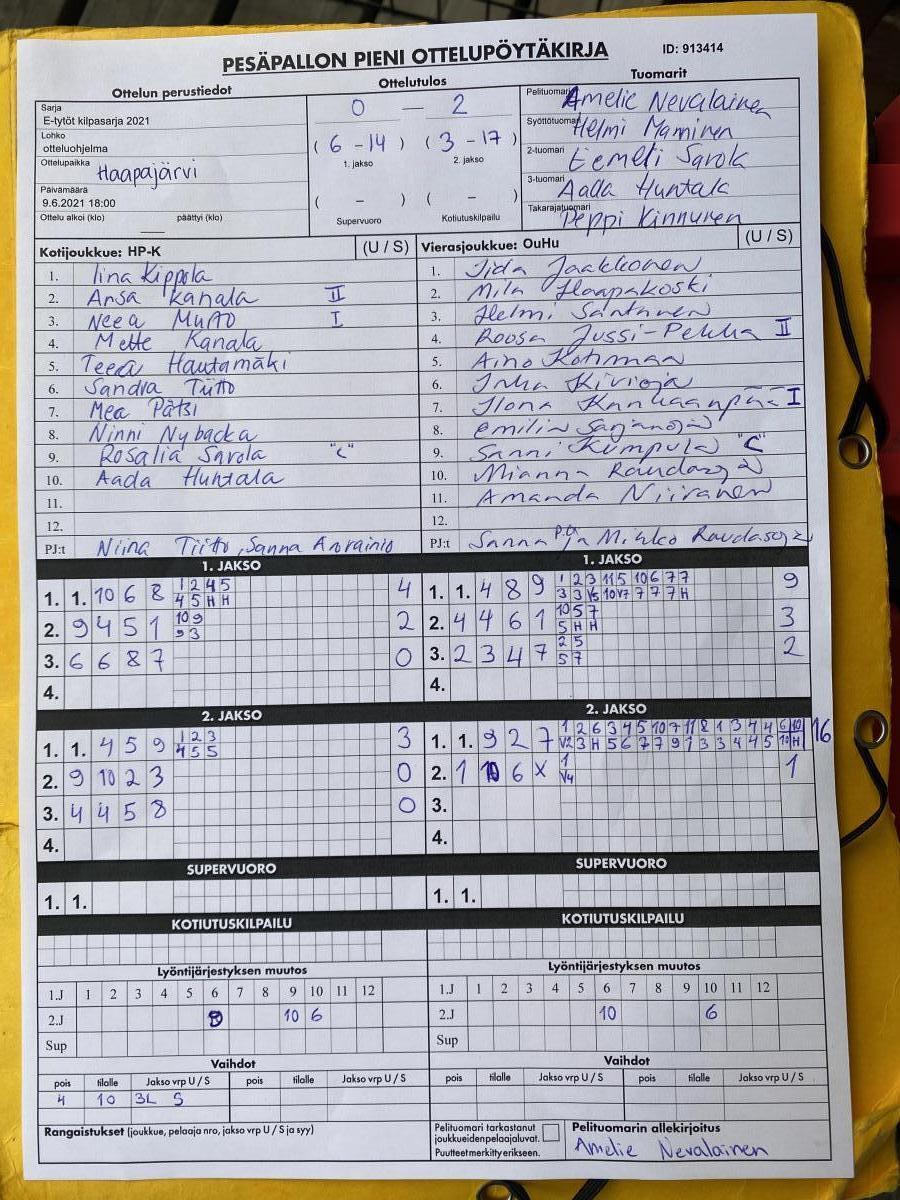 PESÄPALLON PIENI OTTELUPÖYTÄKIRJA ID: 913414
Ottelun perustiedot Ottelutulos Tuomarit
Sarja
E-tytöt kilpasarja 2021
Lohko
otteluohjelma
Ottelupaikka Haapajärvi
Päivämäärä
9.6.2021 18:00
Ottelu alkoi (klo) päättyi (klo)
0 — 2
(6 - 14) (3 - 17)
1. jakso 2. jakso
( - ) ( - )
Supervuoro Kotiutuskilpailu
Pelituomari Amelie Nevalainen
Syöttötuomari Helmi Maminen
2-tuomari Eemeli Sarola
3-tuomari Aada Huntala
Takarajatuomari Peppi Kinnunen
Kotijoukkue: HP-K (U / S)
1. Iina Kippola
2. Ansa Kanala II
3. Neea Murto I
4. Mette Kanala
5. Teea Hautamäki
6. Sandra Tiitto
7. Mea Pätsi
8. Ninni Nybacka
9. Rosalia Sarola "C"
10. Aada Huntala
11.
12.
PJ:t Niina Tiitto, Sanna
Vierasjoukkue: OuHu (U / S)
1. Iida Jaakkonen
2. Mila Haapakoski
3. Helmi Säntänen
4. Roosa Jussi-Pekka II
5. Aino Kotimaa
6. Inka Kivioja
7. Ilona Kankaanpää I
8. Emilia Sarjanoja
9. Sanni Kumpula "C"
10. Mianna Raudasoja
11. Amanda Niiranen
12.
PJ:t Sanna P. ja Mirkko Raudasoja
1. JAKSO
1. 1. 10 6 8 1 2 4 5 4
4 5 H H
2. 9 4 5 1 10 9 2
9 3
3. 6 6 8 7 0
4.
1. JAKSO
1. 1. 4 8 9 1 2 3 11 5 10 6 7 7 9
3 3 V5 10 V7 7 7 7 H
2. 4 4 6 1 10 5 7 3
5 H H
3. 2 3 4 7 2 5 2
5 7
4.
2. JAKSO
1. 1. 4 5 9 1 2 3 3
4 5 5
2. 9 10 2 3 0
3. 4 4 5 8 0
4.
2. JAKSO
1. 1. 9 2 7 1 2 6 3 4 5 10 7 11 8 1 3 4 4 6 10 16
V2 3 H 5 6 7 7 9 1 3 3 4 4 5 10 H
2. 1 10 6 X 1 1
V4
3.
4.
SUPERVUORO SUPERVUORO
1. 1. 1. 1.
KOTIUTUSKILPAILU KOTIUTUSKILPAILU
Lyöntijärjestyksen muutos Lyöntijärjestyksen muutos
1.J 1 2 3 4 5 6 7 8 9 10 11 12 1.J 1 2 3 4 5 6 7 8 9 10 11 12
2.J 10 6 2.J 10 6
Sup Sup
Vaihdot Vaihdot
pois tilalle Jakso vrp U / S pois tilalle Jakso vrp U / S pois tilalle Jakso vrp U / S pois tilalle Jakso vrp U / S
4 10 3L S
Rangaistukset (joukkue, pelaaja nro, jakso vrp U / S ja syy)
Pelituomari tarkastanut
joukkueiden pelaajaluvat.
Puutteet merkitty erikseen.
Pelituomarin allekirjoitus
Amelie Nevalainen